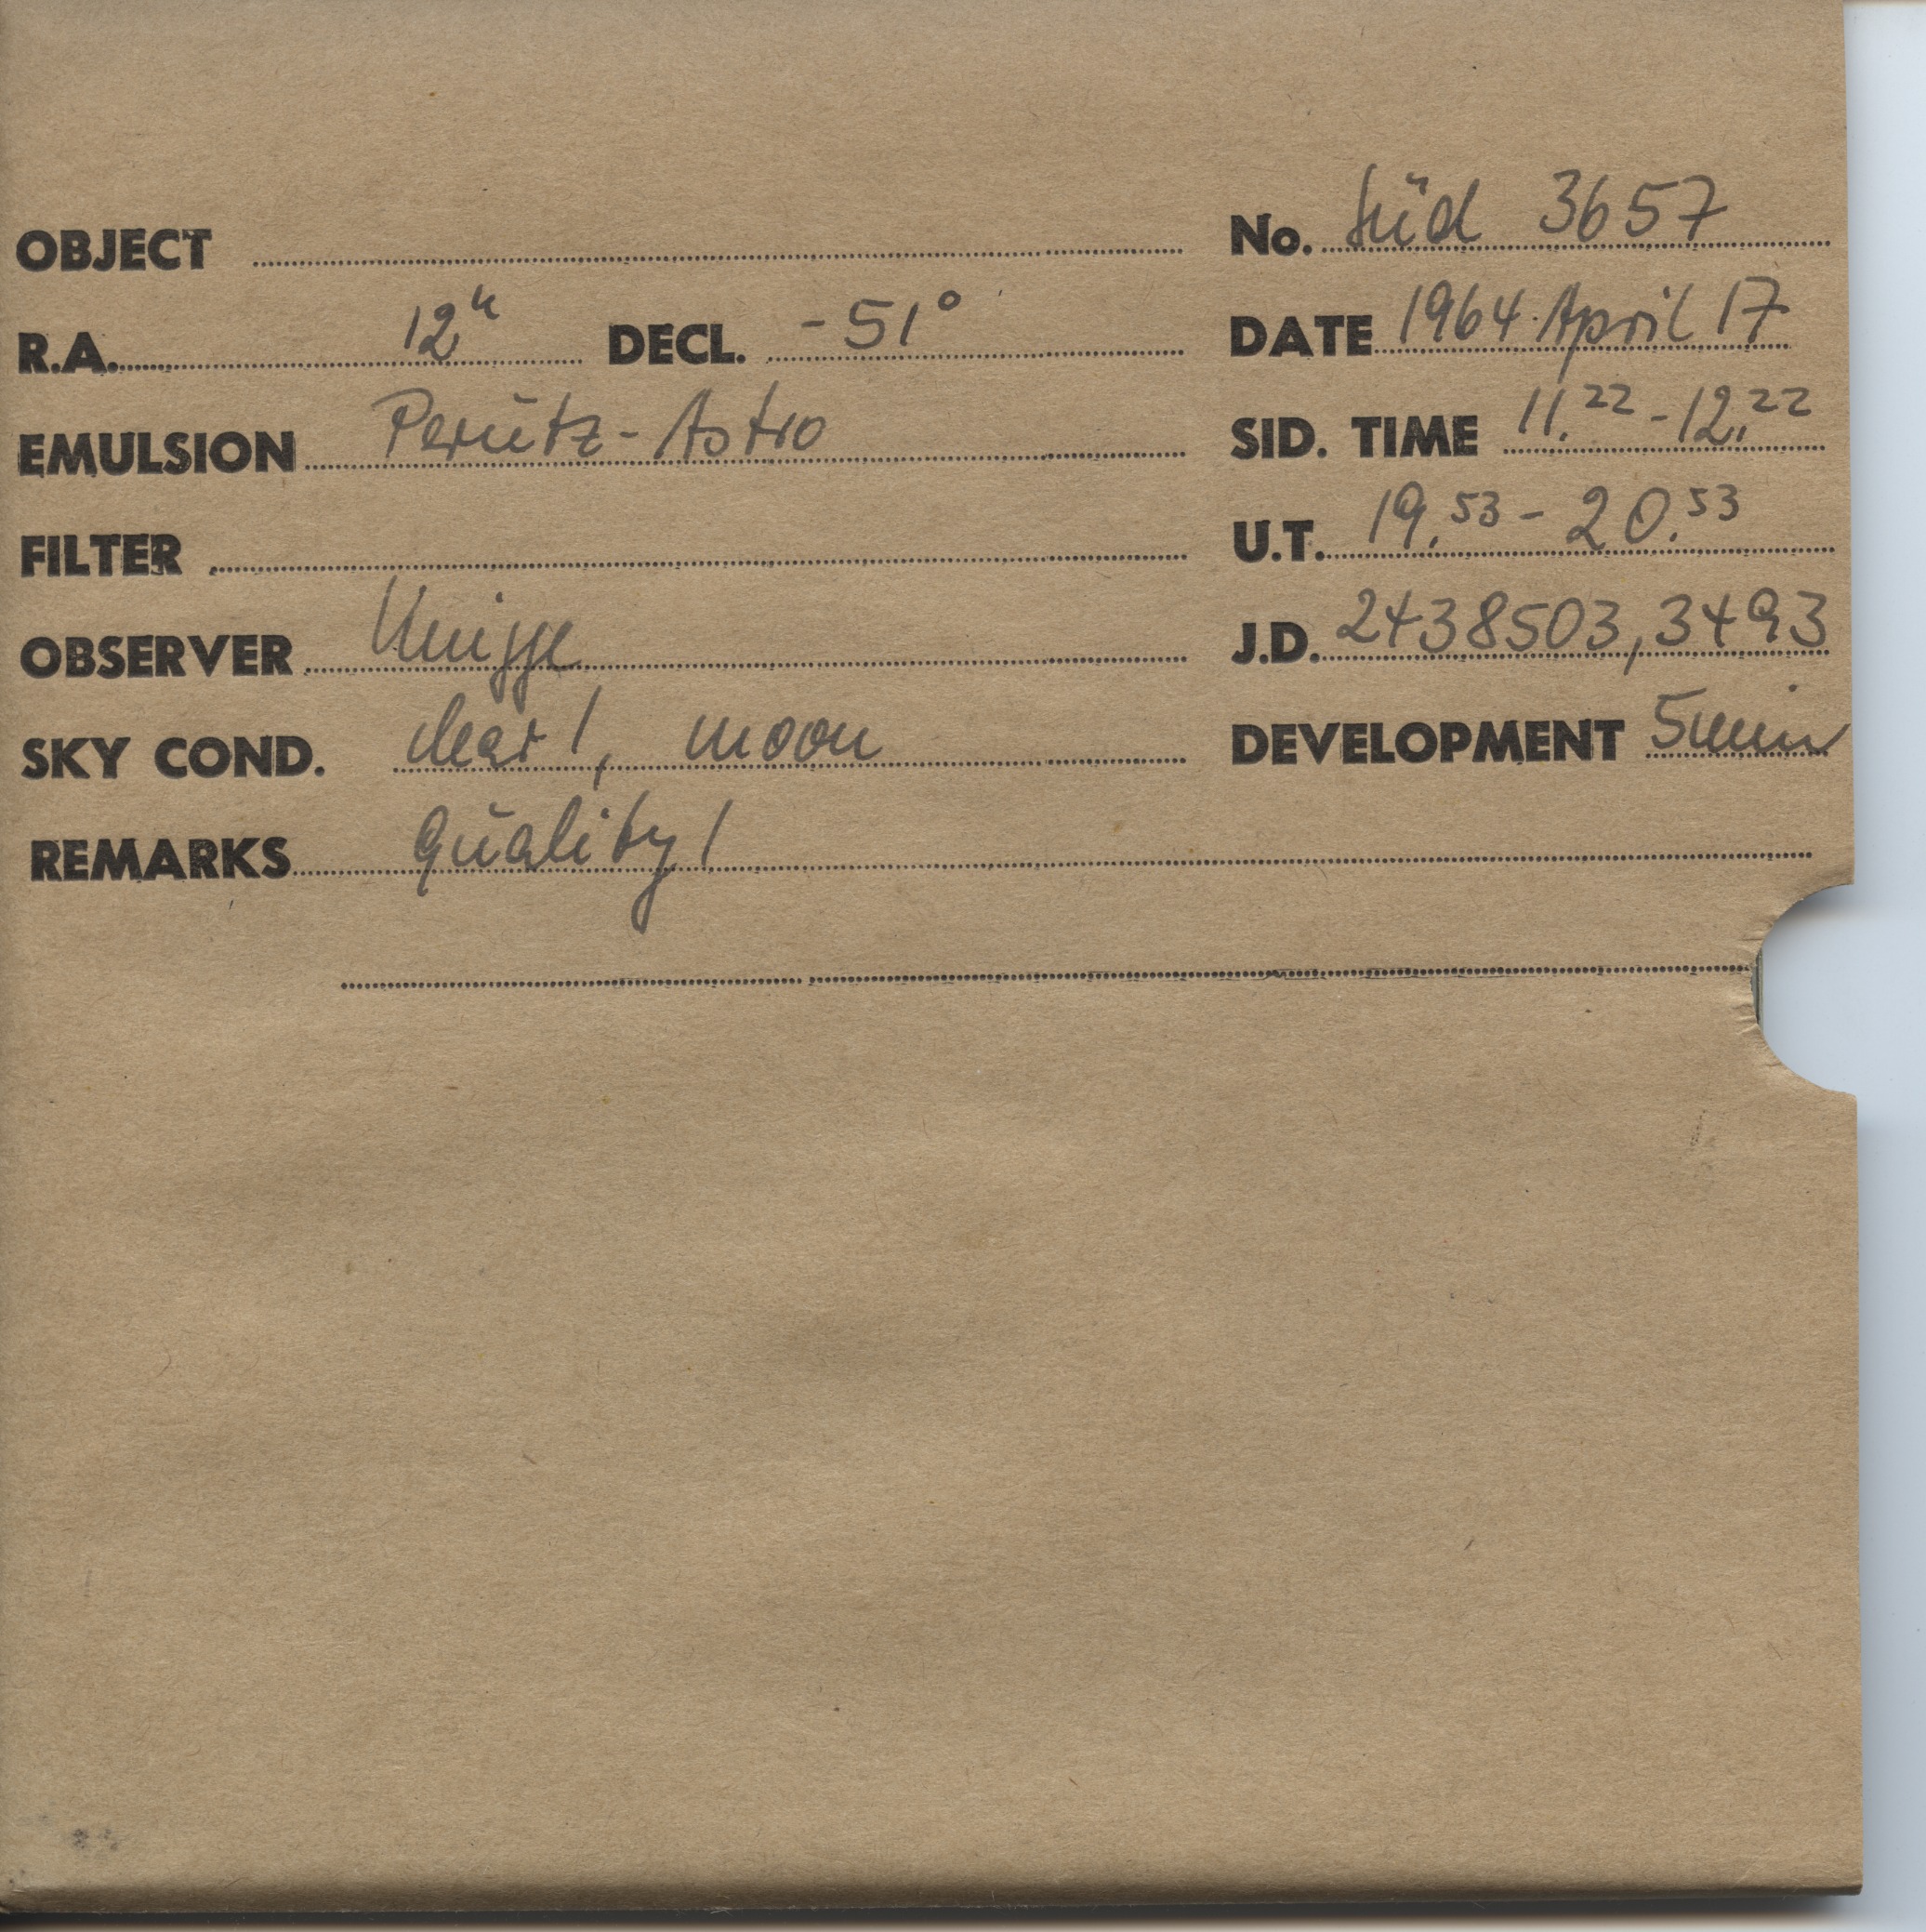 OBJECT
No. Süd 3657
R.A. 12h DECL. -51°
DATE 1964 April 17
EMULSION Perutz-Astro
SID. TIME 11.22 - 12.22
FILTER
U.T. 19.53 - 20.53
OBSERVER Knigge
J.D. 2438503,3493
SKY COND. clear!, moon
DEVELOPMENT 5min
REMARKS quality!